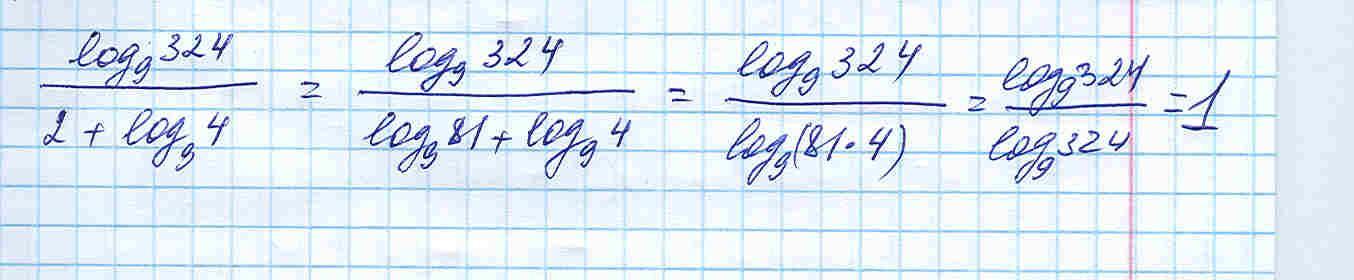 log₉324 / (2 + log₉4) = log₉324 / (log₉81 + log₉4) = log₉324 / log₉(81·4) = log₉324 / log₉324 = 1